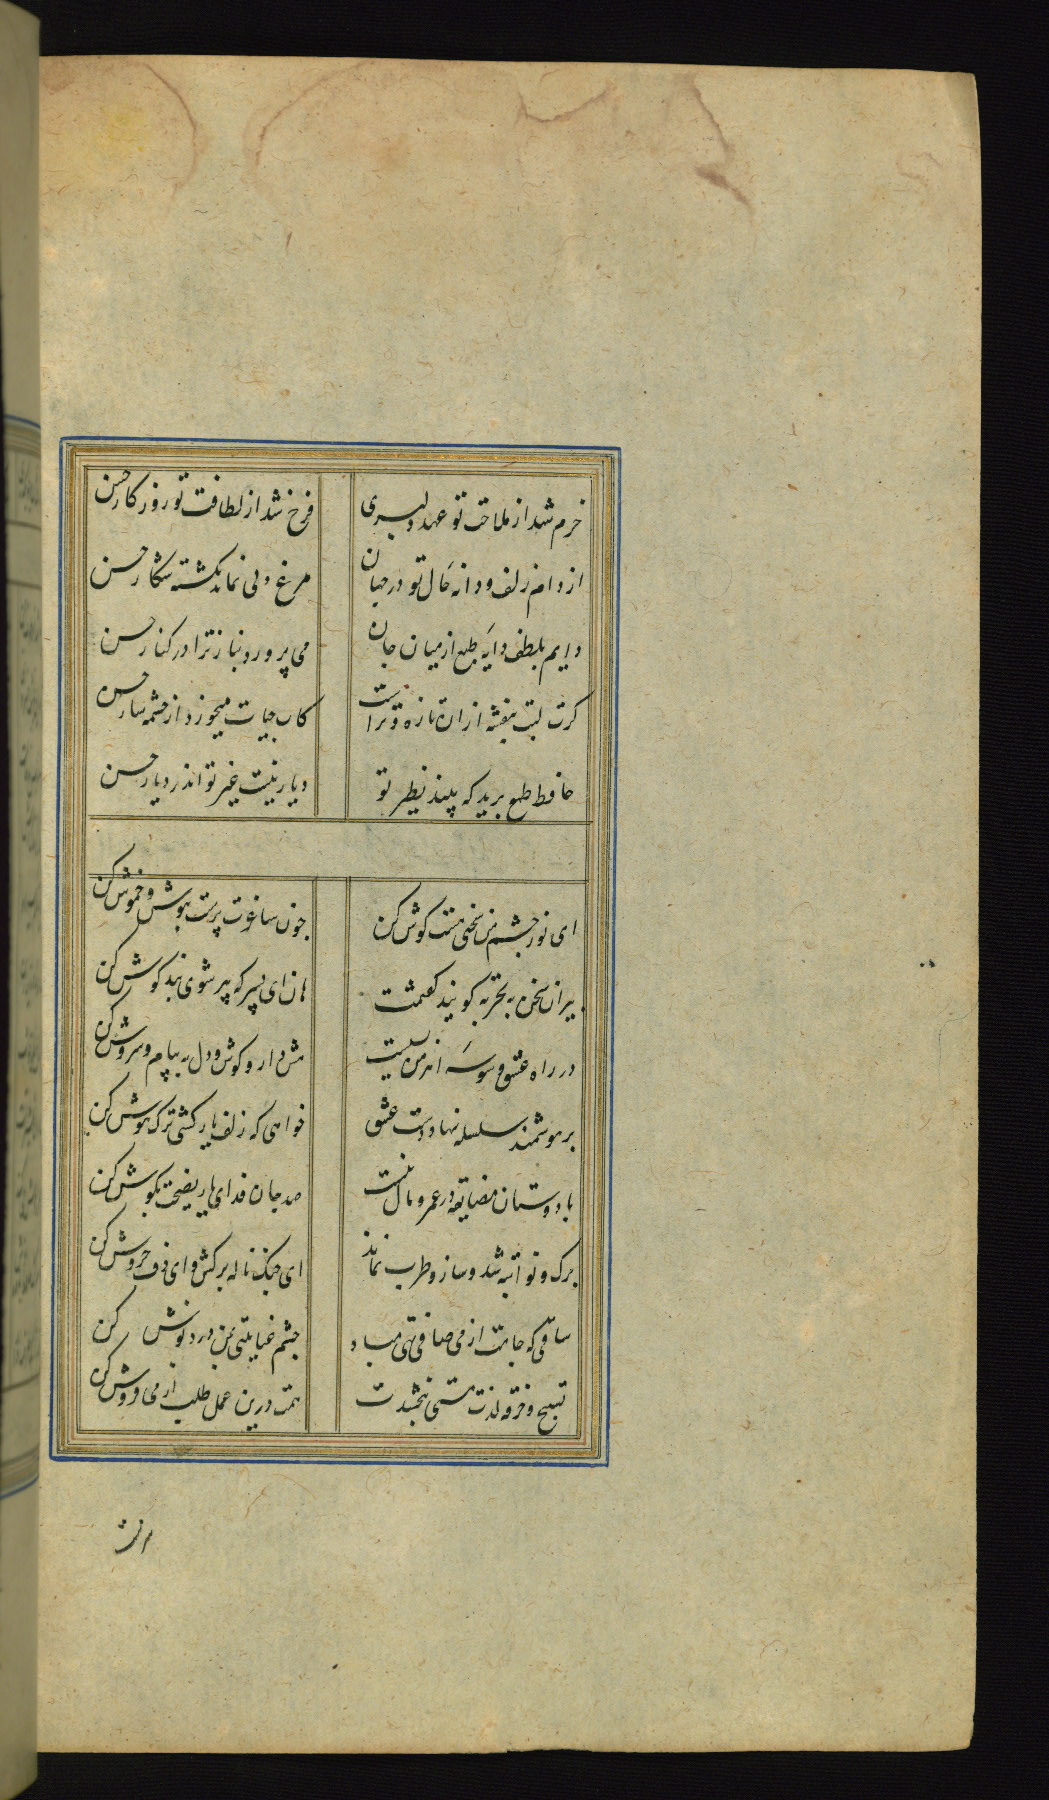 خرم شد از ملاحت تو عهد دلبری فرخ شد از لطافت تو روزکار حسن
از دام زلف و دانه خال تو در جهان مرغ دلی نماند نکشته شکار حسن
دایم بلطف دایه طبع از میان جان می پرورد بناز ترا در کنار حسن
کرد لبت بنفشه از ان تازه و تر است کاب حیات میخورد از چشمه سار حسن
حافظ طمع برید که بیند نظیر تو دیار نیست غیر تو اندر دیار حسن
ای نور چشم من سخنی هست کوش کن چون ساغرت پرست بنوش و خموش کن
پیران سخن به تجربه کویند کفتمت هان ای پسر که پیر شوی پند کوش کن
در راه عشق وسوسه اهرمن بسیست هش دار و کوش دل به پیام سروش کن
بر هوشمند سلسله ننهاد دست عشق خواهی که زلف یار کشی ترک هوش کن
با دوستان مضایقه در عمر و مال نیست صد جان فدای یار نصیحت نیوش کن
برک و نوا تبه شد و ساز و طرب نماند ای چنک ناله برکش و ای دف خروش کن
ساقی که جامت از می صافی تهی مباد چشم عنایتی بمن درد نوش کن
تسبیح و خرقه لذت مستی نبخشدت همت درین عمل طلب از می فروش کن